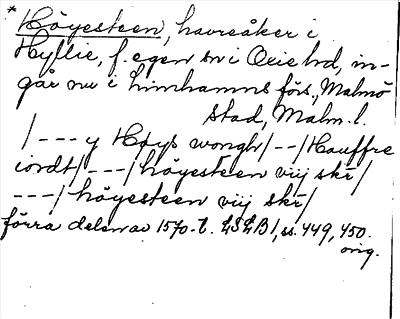 * Höyesteen, havreåker i
Hyllie, f. egen sn i Oxie hd, in-
går nu i Limhamns förs., Malmö
stad, Malm. l.
/ - - - y Høys wongh/ - - /Hauffre
iordt/ - - -/ höyesteen viij skr/
- - -/ höyesteen vij skr/
förra delen av 1570-t. LSLB 1, ss. 449, 450.
orig.